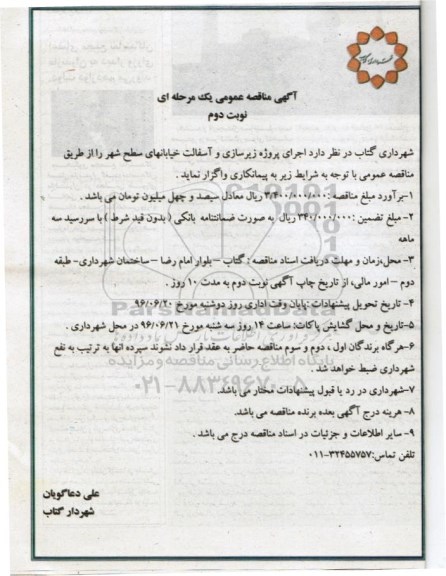 آگهی مناقصه عمومی یک مرحله ای
نوبت دوم
شهرداری گتاب در نظر دارد اجرای پروژه زیرسازی و آسفالت خیابانهای سطح شهر را از طریق
مناقصه عمومی با توجه به شرایط زیر به پیمانکاری واگزار نماید .
۱-برآورد مبلغ مناقصه :۳/۴۰۰/۰۰۰/۰۰۰ ریال معادل سیصد و چهل میلیون تومان می باشد .
۲- مبلغ تضمین :۳۴۰/۰۰۰/۰۰۰ ریال به صورت ضمانتنامه بانکی ( بدون قید شرط ) با سررسید سه
ماهه
۳- محل،زمان و مهلت دریافت اسناد مناقصه : گتاب – بلوار امام رضا – ساختمان شهرداری- طبقه
دوم – امور مالی، از تاریخ چاپ آگهی نوبت دوم به مدت ۱۰ روز .
۴- تاریخ تحویل پیشنهادات :پایان وقت اداری روز دوشنبه مورخ ۹۶/۰۶/۲۰
۵-تاریخ و محل گشایش پاکات: ساعت ۱۴ روز سه شنبه مورخ ۹۶/۰۶/۲۱ در محل شهرداری .
۶-هرگاه برندگان اول ، دوم و سوم مناقصه حاضر به عقد قرار داد نشوند سپرده آنها به ترتیب به نفع
شهرداری ضبط خواهد شد .
۷-شهرداری در رد یا قبول پیشنهادات مختار می باشد.
۸- هزینه درج آگهی بعده برنده مناقصه می باشد.
۹- سایر اطلاعات و جزئیات در اسناد مناقصه درج می باشد .
تلفن تماس:۳۲۴۵۵۷۵۷-۰۱۱
علی دعاگویان
شهردار گتاب
ParsNamadData
پایگاه اطلاع رسانی مناقصه و مزایده
۰۲۱-۸۸۳۴۹۶۷۰-۵